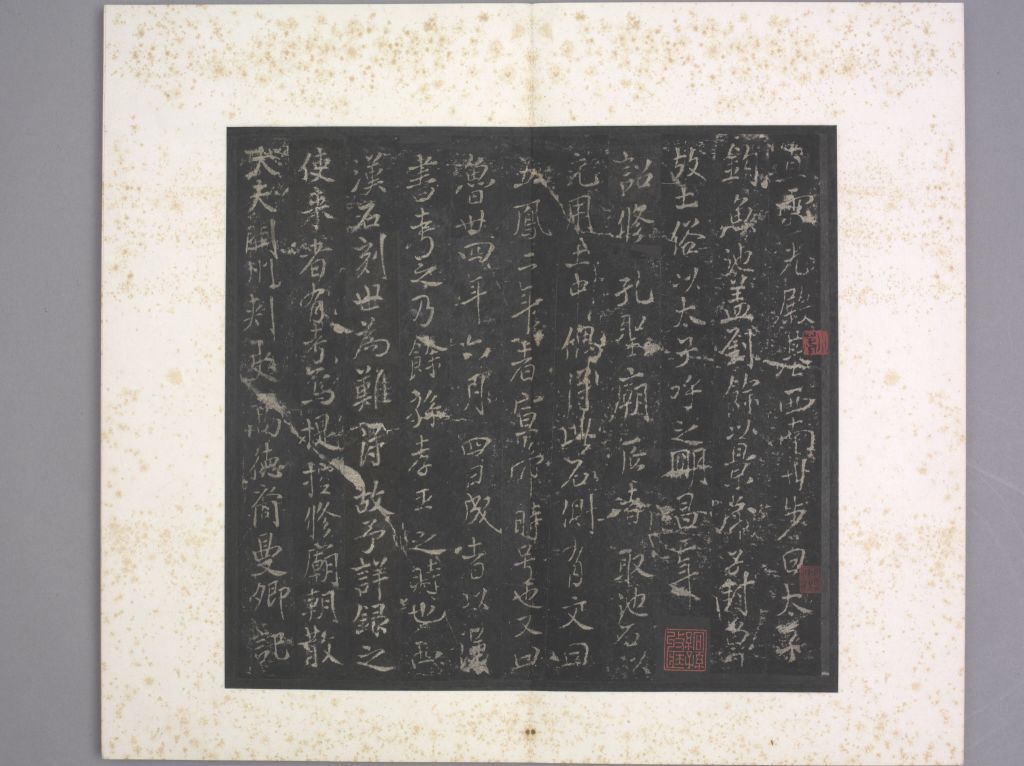 魯靈光殿基西南卅步曰太子
釣魚池盖劉餘以景帝子封魯
故土俗以太子呼之明昌二年
詔修孔聖廟匠者取池石以
充用土中偶得此石側有文曰
五鳳二年者宣帝時号也又曰
魯卅四年六月四日成者以漢
書考之乃餘孫孝王之時也西
漢石刻世為難得故予詳録之
使來者有考焉提控修廟朝散
大夫開州刺史高德裔曼卿記